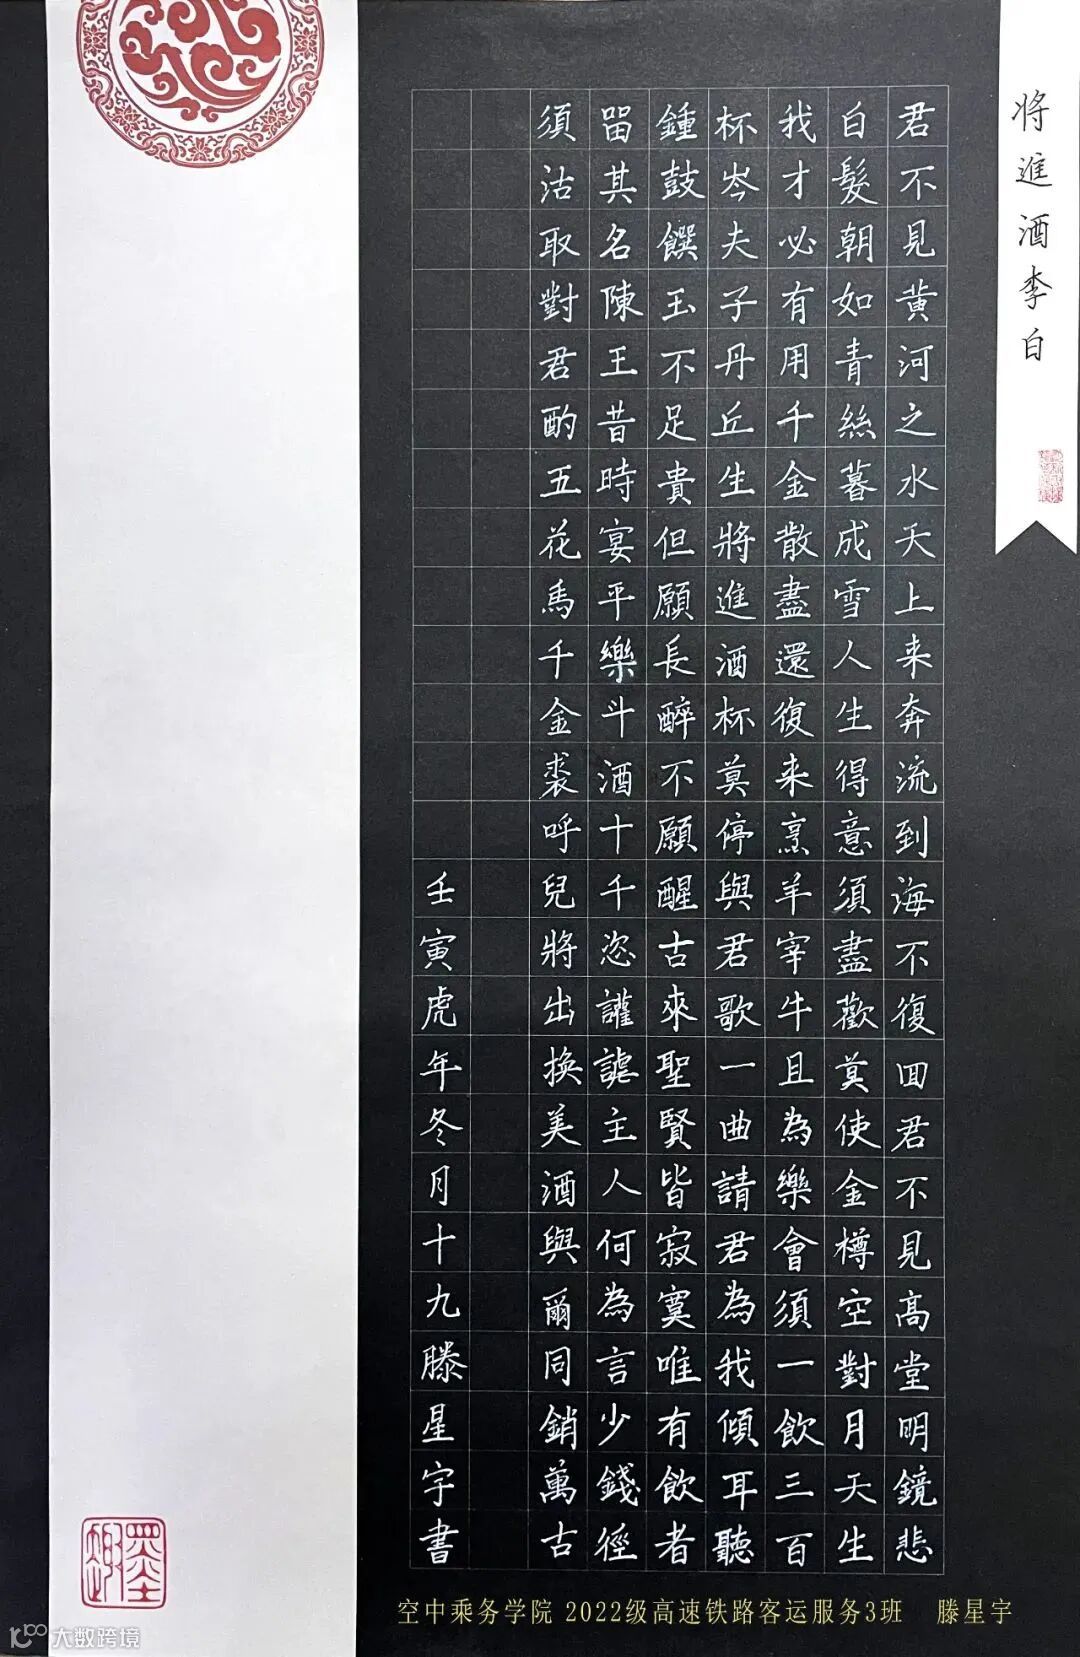 将進酒李白
君不見黄河之水天上来奔流到海不復囬君不見高堂明鏡悲
白髮朝如青絲暮成雪人生得意須盡歡莫使金樽空對月天生
我才必有用千金散盡還復来烹羊宰牛且為樂會須一飲三百
杯岑夫子丹丘生將進酒杯莫停與君歌一曲請君為我傾耳聽
鍾鼓饌玉不足貴但願長醉不願醒古來聖賢皆寂寞唯有飲者
畱其名陳王昔時宴平樂斗酒十千恣讙謔主人何為言少錢徑
須沽取對君酌五花馬千金裘呼兒將出换美酒與爾同銷萬古
壬寅虎年冬月十九滕星宇書
空中乘务学院 2022级高速铁路客运服务3班 滕星宇
墨趣
大数跨境